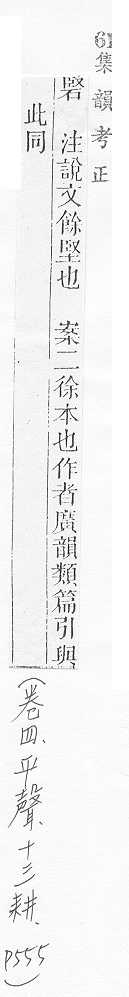 61集韻考正
硻　注說文餘堅也　案二徐本也作者廣韻類篇引與
此同
（卷四、平聲、十三耕、P555）